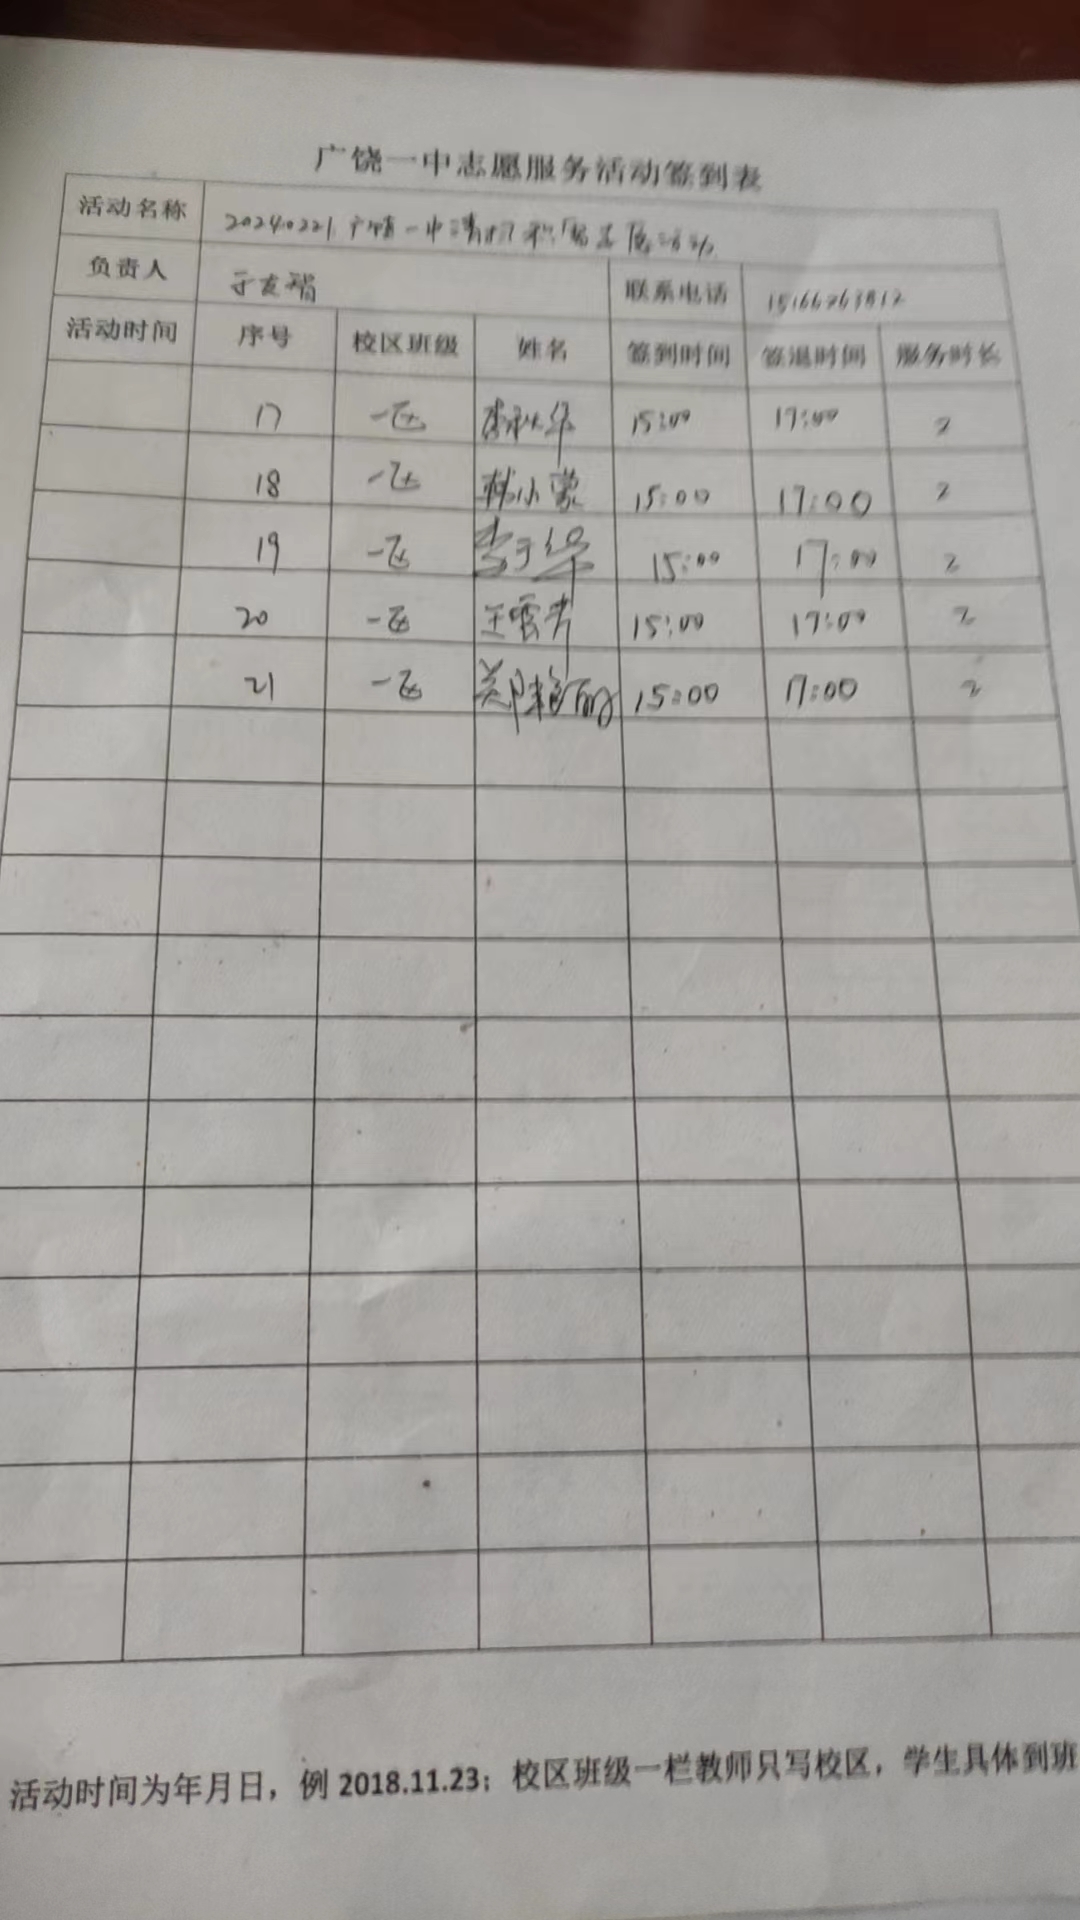 广饶一中志愿服务活动签到表
活动名称 20240221广饶一中清扫积雪志愿活动
负责人 于友娟 联系电话
活动时间 序号 校区班级 姓名 签到时间 签退时间 服务时长
17 一区 李秋华 15:00 17:00 2
18 一区 林小蒙 15:00 17:00 2
19 一区 15:00 17:00 2
20 一区 王雪芳 15:00 17:00 2
21 一区 郑艳丽 15:00 17:00 2
活动时间为年月日，例 2018.11.23；校区班级一栏教师只写校区，学生具体到班